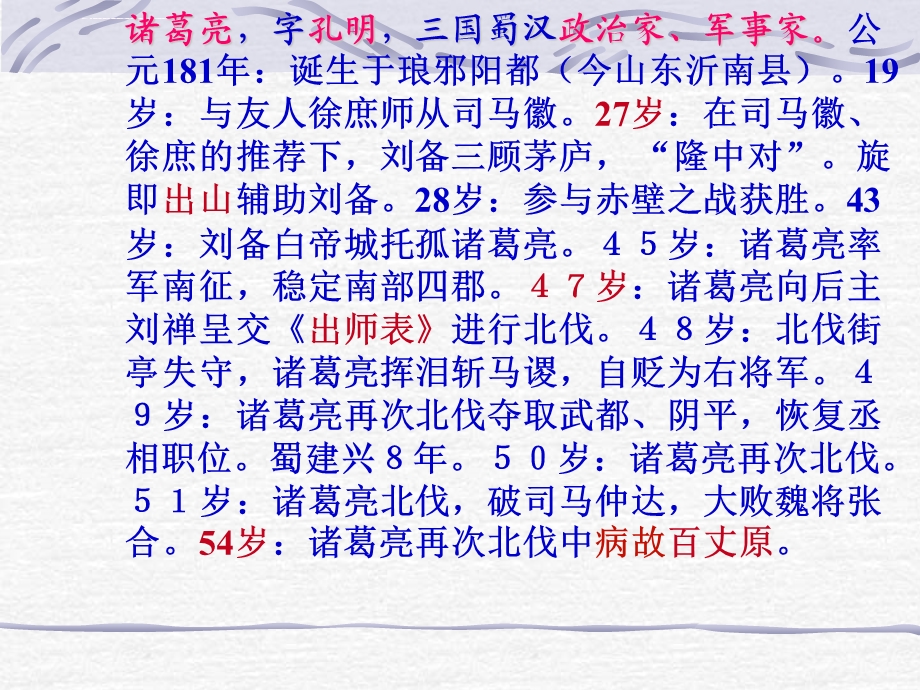 诸葛亮，字孔明，三国蜀汉政治家、军事家。公
元181年：诞生于琅邪阳都（今山东沂南县）。19
岁：与友人徐庶师从司马徽。27岁：在司马徽、
徐庶的推荐下，刘备三顾茅庐，“隆中对”。旋
即出山辅助刘备。28岁：参与赤壁之战获胜。43
岁：刘备白帝城托孤诸葛亮。４５岁：诸葛亮率
军南征，稳定南部四郡。４７岁：诸葛亮向后主
刘禅呈交《出师表》进行北伐。４８岁：北伐街
亭失守，诸葛亮挥泪斩马谡，自贬为右将军。４
９岁：诸葛亮再次北伐夺取武都、阴平，恢复丞
相职位。蜀建兴８年。５０岁：诸葛亮再次北伐。
５１岁：诸葛亮北伐，破司马仲达，大败魏将张
合。54岁：诸葛亮再次北伐中病故百丈原。